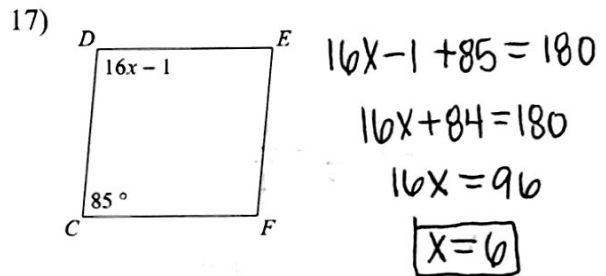 17)
D E
16x – 1
85 °
C F
16x-1+85=180
16x+84=180
16x=96
x=6